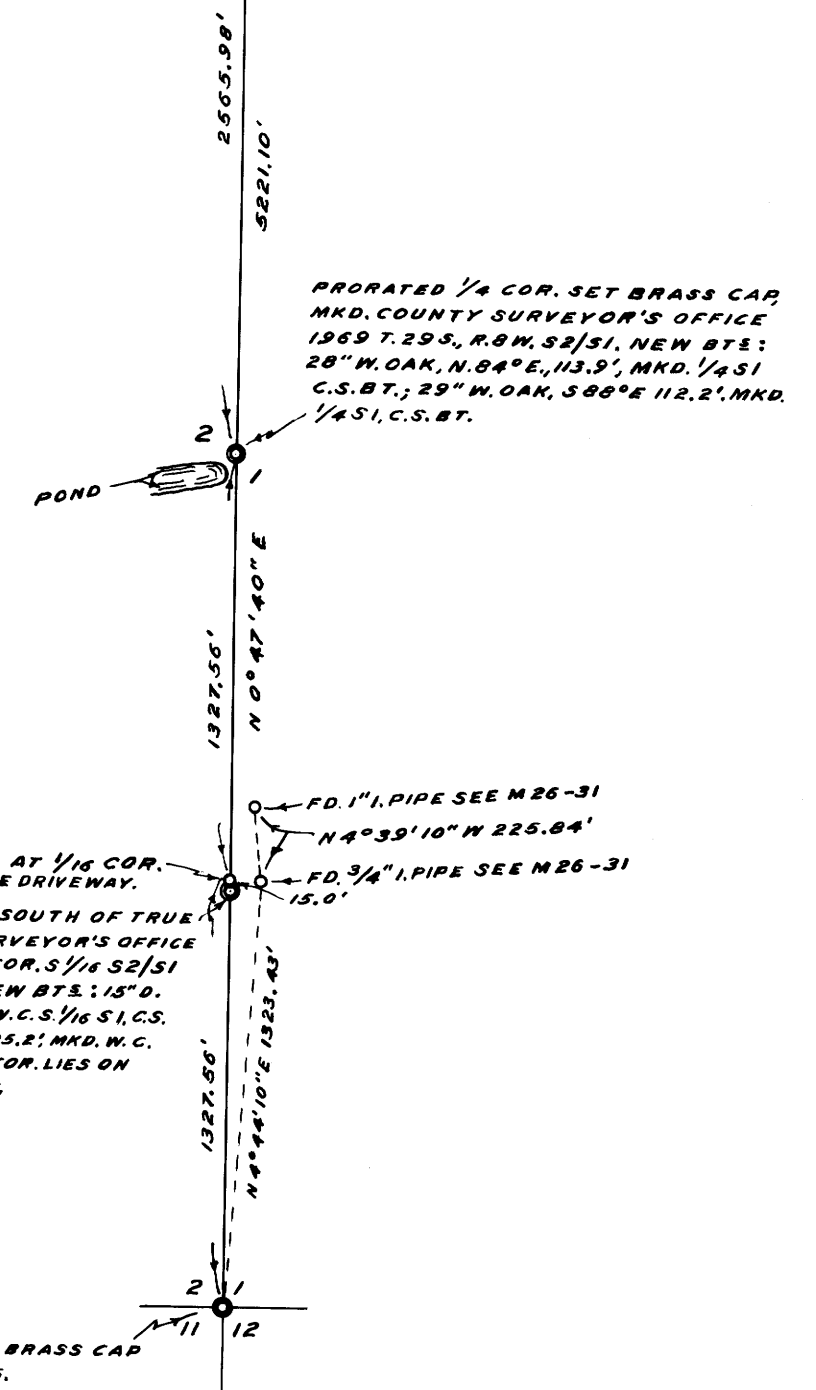 2565.98'
5221.10'
PRORATED 1/4 COR. SET BRASS CAP,
MKD. COUNTY SURVEYOR'S OFFICE
1969 T.29S., R.8W. S2/S1. NEW BTS:
28" W. OAK, N.84°E.,113.9', MKD. 1/4 S1
C.S.BT.; 29" W. OAK, S88°E 112.2'. MKD.
1/4 S1, C.S. BT.
2
1
POND
N 0° 47' 40" E
1327.56'
FD. 1" I. PIPE SEE M 26-31
N 4° 39' 10" W 225.84'
AT 1/16 COR.
E DRIVEWAY.
FD. 3/4" I. PIPE SEE M 26-31
15.0'
SOUTH OF TRUE
RVEYOR'S OFFICE
COR. S 1/16 S2/S1
EW BTS: 15" D.
W.C.S. 1/16 S1, C.S.
5.2', MKD. W.C.
COR. LIES ON
1327.56'
N 4° 44' 10" E 1323.43'
2 1
11 12
BRASS CAP